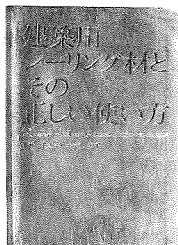 建築用
シーリング材と
その
正しい使い方